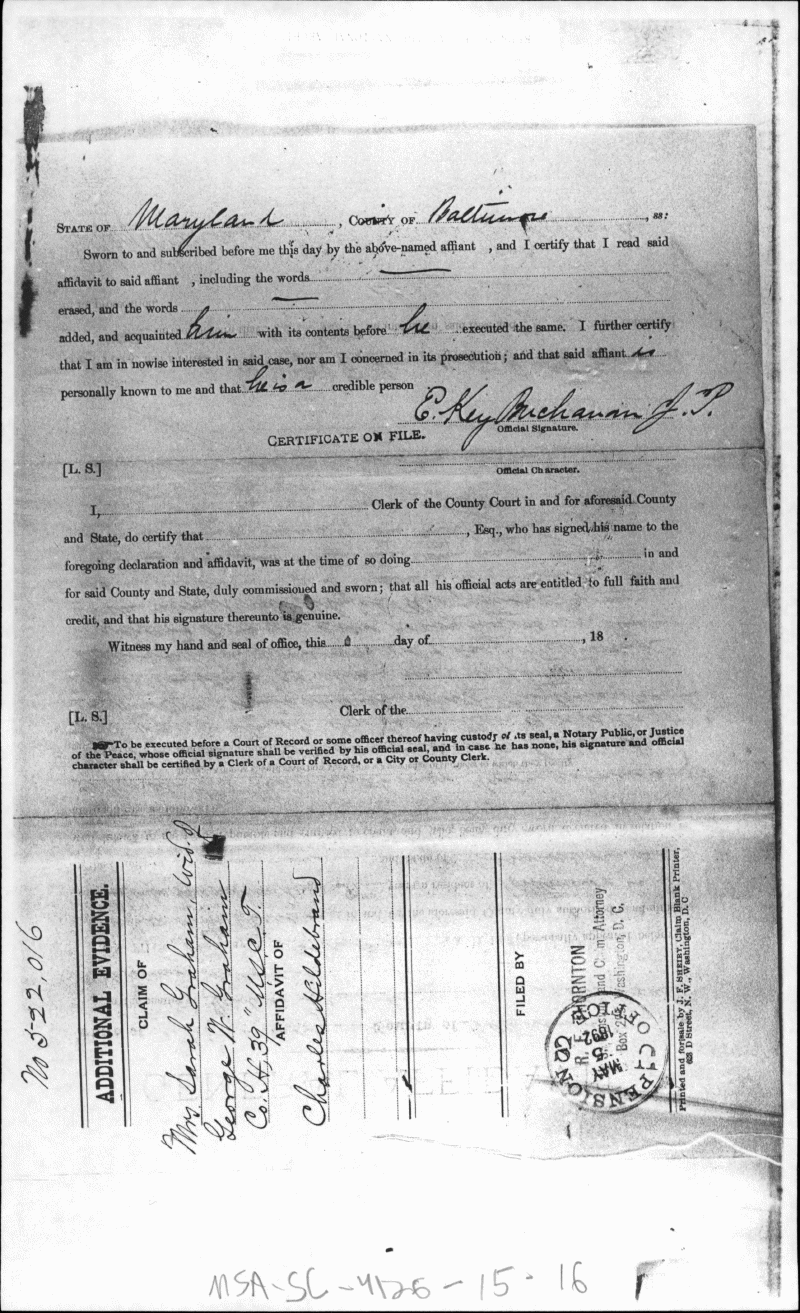 STATE OF Maryland, COUNTY OF Baltimore, ss:
Sworn to and subscribed before me this day by the above-named affiant , and I certify that I read said
affidavit to said affiant , including the words
erased, and the words
added, and acquainted him with its contents before he executed the same. I further certify
that I am in nowise interested in said case, nor am I concerned in its prosecution; and that said affiant is
personally known to me and that he is a credible person
E. Key Buchanan J. P.
Official Signature.
CERTIFICATE ON FILE.
[L. S.]
Official Character.
I, Clerk of the County Court in and for aforesaid County
and State, do certify that , Esq., who has signed his name to the
foregoing declaration and affidavit, was at the time of so doing in and
for said County and State, duly commissioned and sworn; that all his official acts are entitled to full faith and
credit, and that his signature thereunto is genuine.
Witness my hand and seal of office, this day of , 18 .
[L. S.]
Clerk of the
To be executed before a Court of Record or some officer thereof having custody of its seal, a Notary Public, or Justice
of the Peace, whose official signature shall be verified by his official seal, and in case he has none, his signature and official
character shall be certified by a Clerk of a Court of Record, or a City or County Clerk.
No 522,016
ADDITIONAL EVIDENCE.
CLAIM OF
Mrs Sarah Graham, Wid. of
George W. Graham
Co. H, 39" U.S.C.T.
AFFIDAVIT OF
Charles Hildebrand
FILED BY
THORNTON
Attorney
Box Washington, D. C.
PENSION OFFICE
MAY 5 1892
Printed and for sale by J. F. SHEIRY, Claim Blank Printer,
623 D Street, N. W., Washington, D. C
MSA-SC-4126-15-16